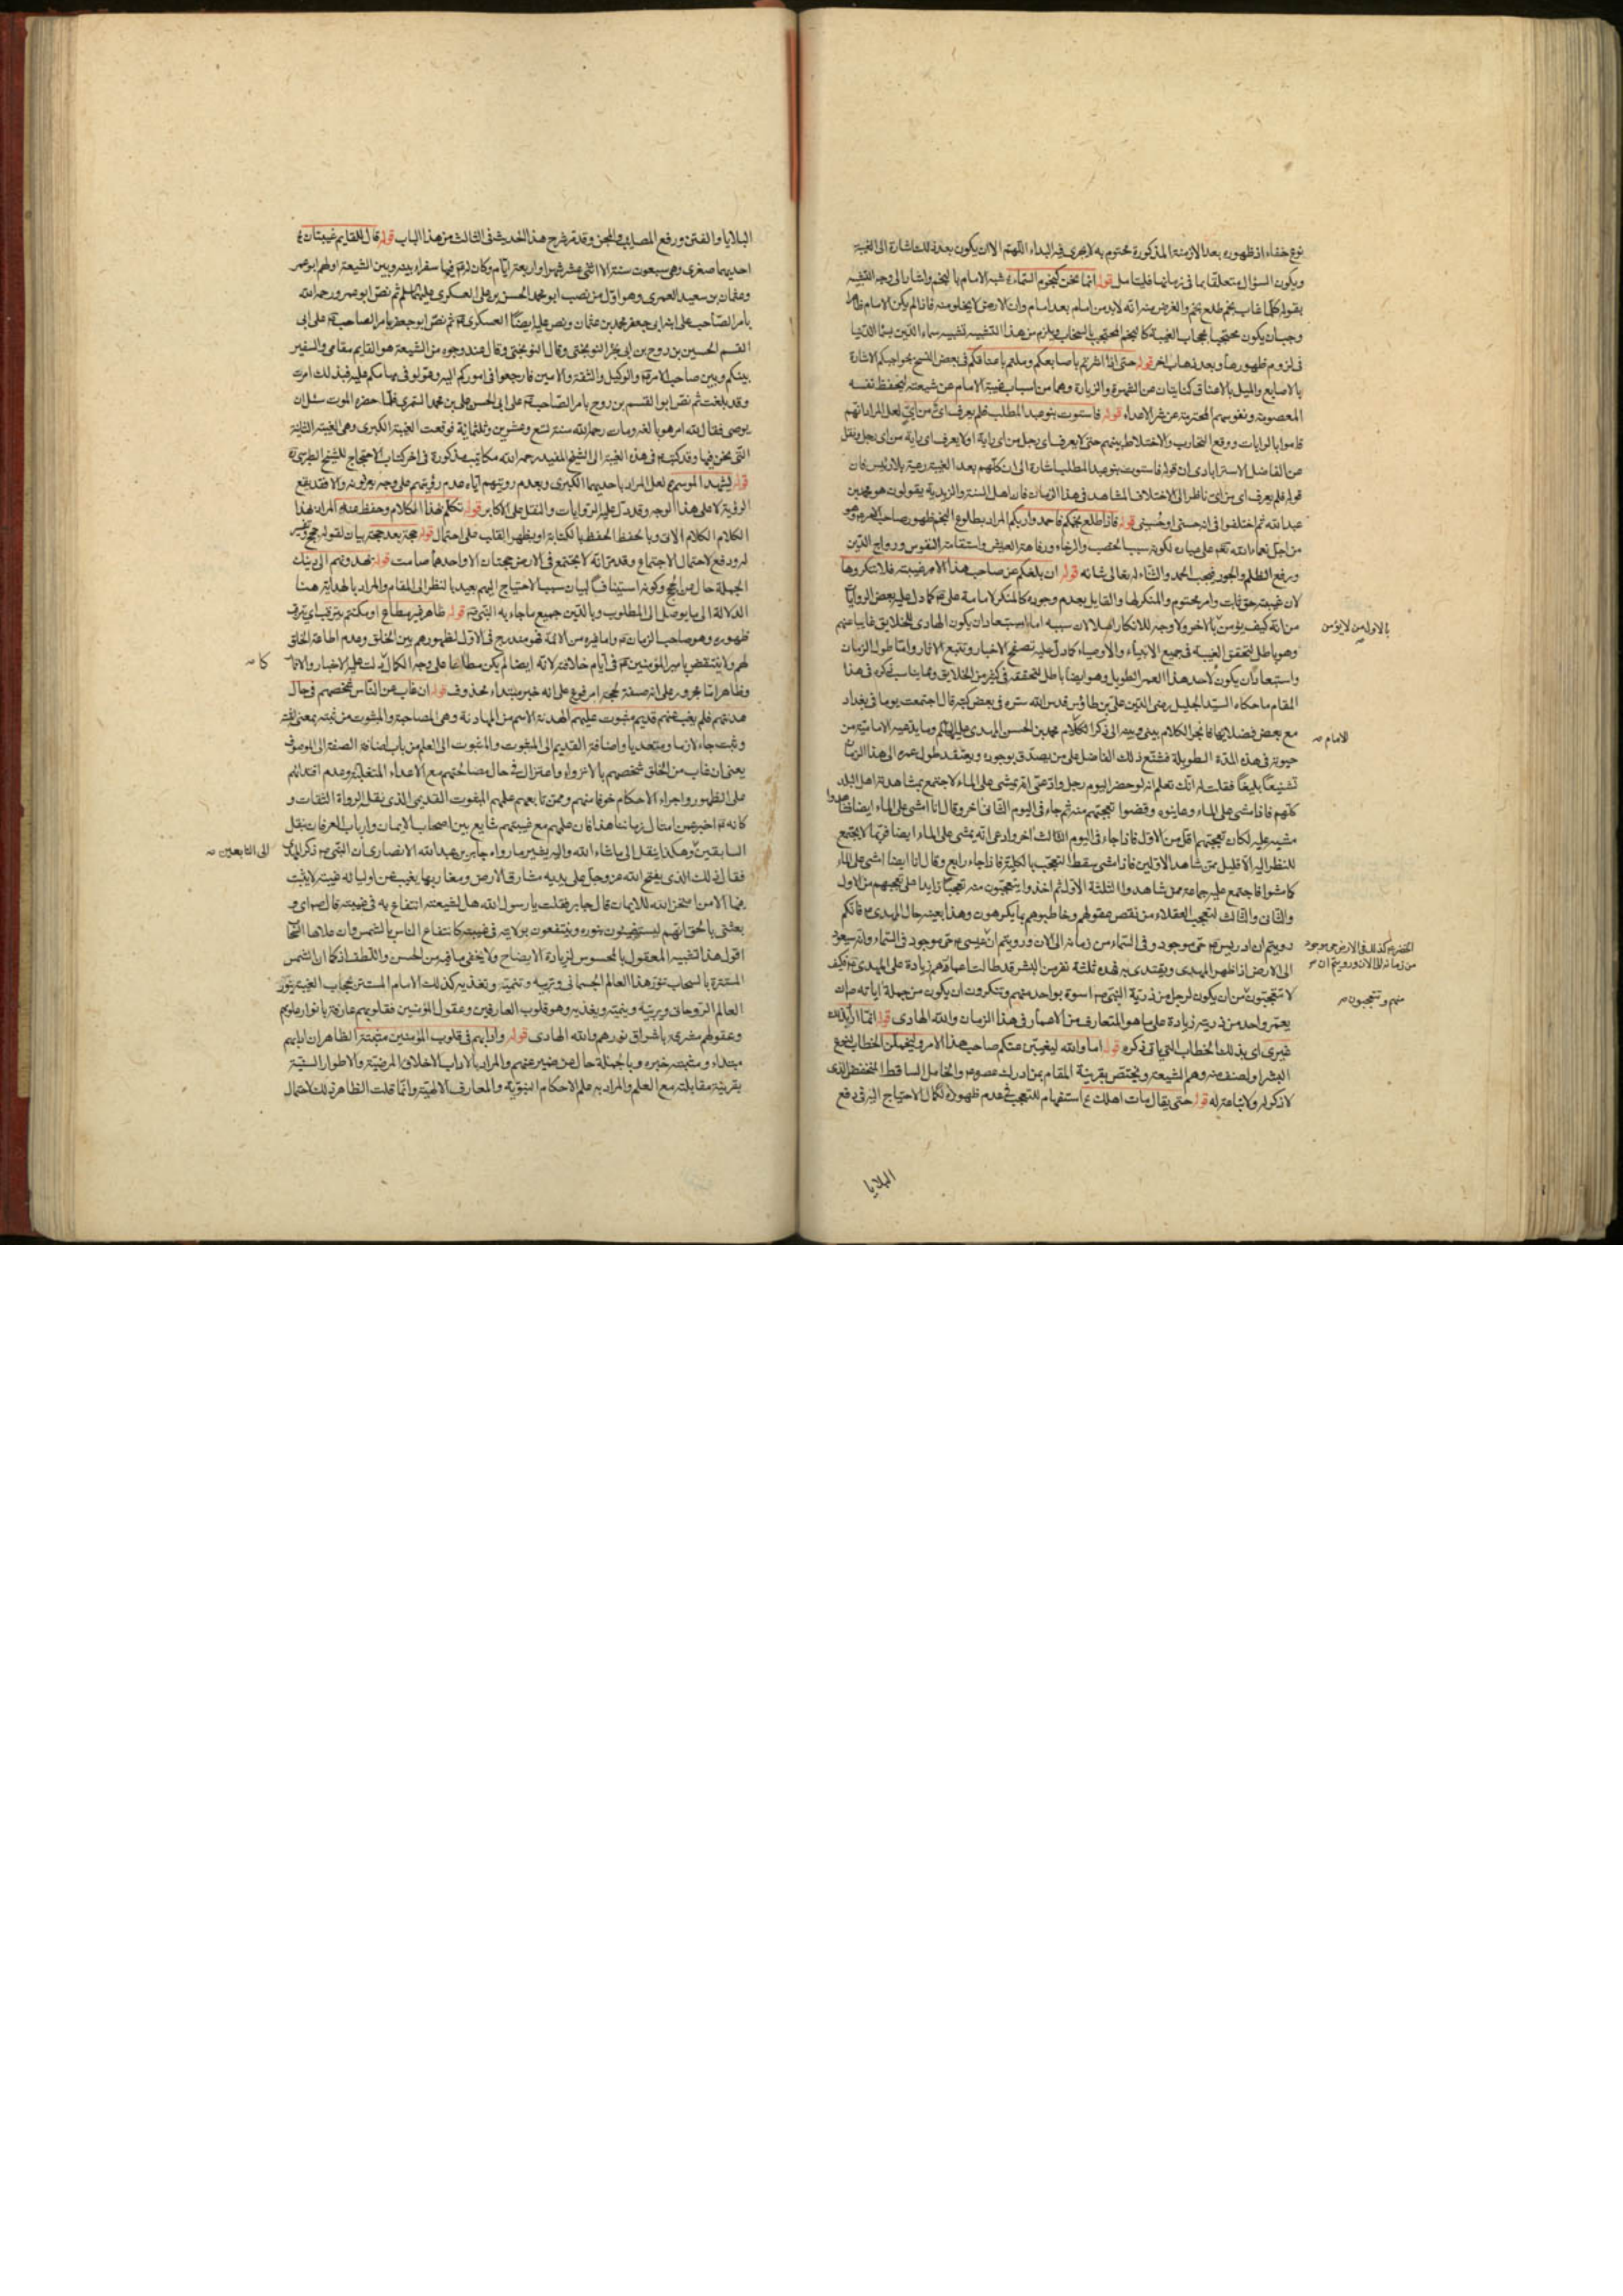 نوع خفاء اذ ظهوره بعد الازمنة المذكورة محتوم به لا يجرى فيه البداء اللهم الا ان يكون بعد ذلك اشارة الى الغيبة
ويكون السؤال متعلقا بما فى زمانها فليتامل قوله انما نحن كنجوم السماء شبه الامام بالنجم واشار الى وجه التشبيه
بقوله كلما غاب نجم طلع نجم والغرض منه انه لابد من امام بعد امام وان الارض لا يخلو منه فاذا لم يكن الامام ظاهرا
وجب ان يكون محتجبا بحجاب الغيبة كالنجم المحتجب بالسحاب ويلزم من هذا التشبيه تشبيه سماء الدين بسماء الدنيا
فى لزوم ظهورها وبعد ذهاب اخر قوله حتى اذا اشرتم باصابعكم وملتم باعناقكم فى بعض النسخ بحواجبكم الاشارة
بالاصابع والميل بالاعناق كنايتان عن الشهرة والزيارة وهما من اسباب غيبة الامام عن شيعته ليحفظ نفسه
المعصومة ونفوسهم المحترمة عن شر الاعداء قوله فاستوت بنو عبد المطلب فلم يعرف اى من اى لعل المراد انهم
قاموا بالرايات ووقع التحارب والاختلاط بينهم حتى لا يعرف اى رجل من اى راية او لا يعرف اى راية من اى رجل ونقل
عن الفاضل الاسترابادى ان قوله فاستوت بنو عبد المطلب اشارة الى ان كانهم بعد الغيبة رعية بلا رئيس فان
قوله فلم يعرف اى من اى ناظر الى الاختلاف المشاهد فى هذا الزمان فان اهل السنة والزيدية يقولون هو محمد بن
عبد الله ثم اختلفوا فى انه حسنى او حسينى قوله فاذا طلع نجمكم فاحمدوا ربكم المراد بطلوع النجم ظهور صاحب
من اجل نعماء الله تعالى على عباده لكونه سببا للخصب والرخاء ورفاهة العيش واستقامة النفوس ورواج الدين
ورفع الظلم والجور فيجب الحمد والثناء له تعالى شانه قوله ان بلغكم عن صاحب هذا الامر غيبة فلا تنكروها
لان غيبته حق ثابت وامر محتوم والمنكر لها والقايل بعدم وجوده كالمنكر لامامة على كما دل عليه بعض الروايات
من انه كيف يؤمن بالاخر ولا وجه للانكار اصلا لان سببه اما استبعاد ان يكون الهادى للخلايق غايبا عنهم
وهو باطل لتحقق الغيبة فى جميع الانبياء والاوصياء كما دل عليه تصفح الاخبار وتتبع الاثار واما طول الزمان
واستبعاد ان يكون لاحد هذا العمر الطويل وهو ايضا باطل لتحققه فى كثير من الخلايق ومما يناسب ذكره فى هذا
المقام ما حكاه السيد الجليل رضى الدين على بن طاوس قدس الله سره فى بعض كتبه قال اجتمعت يوما فى بغداد
مع بعض فضلائها فانجر الكلام بينى وبينه الى ذكر محمد بن الحسن المهدى عليه السلام وما يدعيه الامامية من
حيوته فى هذه المدة الطويلة فشنع ذلك الفاضل على من يصدق بوجوده ويعتقد طول عمره الى هذا الزمان
تشنيعا بليغا فقلت له انك تعلم انه لو حضر اليوم رجل وادعى انه يمشى على الماء لاجتمع لمشاهدته اهل البلد
كلهم فاذا مشى على الماء وعاينوه وقضوا تعجبهم منه ثم جاء فى اليوم الثانى اخر وقال انا امشى على الماء ايضا فشاهدوا
مشيه عليه لكان تعجبهم اقل من الاول فاذا جاء فى اليوم الثالث اخر وادعى انه يمشى على الماء ايضا فربما لا يجتمع
للنظر اليه الا قليل ممن شاهد الاولين فاذا مشى سقط التعجب بالكلية فاذا جاء رابع وقال انا ايضا امشى على الماء
كما مشوا فاجتمع عليه جماعة ممن شاهدوا الثلثة الاول ثم اخذوا يتعجبون منه تعجبا زايدا على تعجبهم من الاول
والثانى والثالث لتعجب العقلاء من نقص عقولهم وخاطبوهم بما يكرهون وهذا بعينه حال المهدى فانكم
رويتم ان ادريس حى موجود فى السماء من زمانه الى الان ورويتم ان عيسى حى موجود فى السماء وانه سيعود
الى الارض اذا ظهر المهدى ويقتدى به فهذه ثلثة نفر من البشر قد طالت اعمارهم زيادة على المهدى فكيف
لا تتعجبون من ان يكون لرجل من ذرية النبى اسوة بواحد منهم وتنكرون ان يكون من جملة اياته ان
يعمر واحد من ذريته زيادة على ما هو المتعارف من الاعمار فى هذا الزمان والله الهادى قوله انما اراد بذلك
غيرى اى بذلك الخطاب الذى ياتى ذكره قوله اما والله ليغيبن عنكم صاحب هذا الامر وليخملن الخطاب لنوع
البشر او لصنف منه وهم الشيعة ويختص بقرينة المقام بمن ادرك عصره والخامل الساقط المنخفض الذى
لا ذكر له ولا نباهة له قوله حتى يقال مات هلك استفهام للتعجب فى عدم ظهوره لكمال الاحتياج اليه فى دفع
البلايا
بالاول من لا يؤمن
الامام
الخضر كذلك فى الارض حى موجود
من زمانه الى الان ورويتم ان
منهم وتتعجبون
البلايا والفتن ورفع المصايب والمحن وقد مر شرح هذا الحديث فى الثالث من هذا الباب قوله قال للقايم غيبتان
احديهما صغرى وهى سبعون سنة الا اثنى عشر شهرا واربعة ايام وكان له فيها سفراء بينه وبين الشيعة اولهم ابو عمرو
وعثمان بن سعيد العمرى وهو اول من نصب ابو محمد الحسن بن على العسكرى عليهما السلم ثم نص ابو عمرو رحمه الله
بامر الصاحب على ابنه ابى جعفر محمد بن عثمان ونص عليه ايضا العسكرى ثم نص ابو جعفر بامر الصاحب على ابى
القسم الحسين بن روح بن ابى بحر النوبختى وقال عند وجوه من الشيعة هو القايم مقامى والسفير
بينكم وبين صاحب الامر والوكيل والثقة والامين فارجعوا فى اموركم اليه وعولوا فى مهامكم عليه فبذلك امرت
وقد بلغت ثم نص ابو القسم بن روح بامر الصاحب على ابى الحسن على بن محمد السمرى فلما حضره الموت سئل ان
يوصى فقال لله امر هو بالغه ومات رحمه الله سنة تسع وعشرين وثلثماية فوقعت الغيبة الكبرى وهى الغيبة الثانية
التى نحن فيها وقد كتب فى هذه الغيبة الى الشيخ المفيد رحمه الله مكاتيب مذكورة فى اخر كتاب الاحتجاج للشيخ الطبرسى
قوله يشهد الموسم لعل المراد باحديهما الكبرى وبعدم رويتهم اياه عدم رؤيتهم على وجه يعرفونه والا فقد يقع
الروية لا على هذا الوجه وقد دل عليه الروايات والنقل على الاكابر قوله تكلم بهذا الكلام وحفظ عنه المراد بهذا
الكلام الكلام الاتى وبالحفظ الحفظ بالكتابة او بظهر القلب على احتمال قوله حجة بعد حجة بيان لقوله حجج
له ودفع لاحتمال الاجتماع وقد مر انه لا يجتمع فى الارض حجتان الا واحدهما صامت قوله يهدونهم الى دينك
الجملة حال عن الحجج وكونه استينافا لبيان سبب الاحتياج اليهم بعيد بالنظر الى المقام والمراد بالهداية هنا
الدلالة الى ما يوصل الى المطلوب وبالدين جميع ما جاء به النبى قوله ظاهر غير مطاع او مكتتم يترقب اى يترقب
ظهوره وهو صاحب الزمان واما غيره من الائمة فهو مندرج فى الاول لظهورهم بين الخلق وعدم اطاعة الخلق
لهم ولا ينتقض بامير المؤمنين فى ايام خلافته لانه ايضا لم يكن مطاعا على وجه الكمال دلت عليه الاخبار والاثار
وظاهر اما مجرور على انه صفة لحجة او مرفوع على انه خبر مبتداء محذوف قوله ان غاب عن الناس شخصهم فى حال
هدنتهم فلم يغب عنهم قديم مبثوث علمهم الهدنة الاسم من المهادنة وهى المصاحبة والمبثوث من بثه بمعنى نشره
وثبت جاء لازما ومتعديا واضافة القديم الى المبثوث والمبثوث الى العلم من باب اضافة الصفة الى الموصوف
يعنى ان غاب من الخلق شخصهم بالانزواء واعتزال فى حال مصالحتهم مع الاعداء المتغلبة وعدم اقتدائهم
على الظهور واجراء الاحكام خوفا منهم وممن تابعهم علمهم المبثوث القديم الذى نقل الرواة الثقات و
كانه اخبر عن امثال زماننا هذا فان علمهم مع غيبتهم شايع بين اصحاب الايمان وارباب العرفان بنقل
السابقين وهكذا ينقل الى ما شاء الله واليه يشير ما رواه جابر بن عبد الله الانصارى ان النبى ذكر المهدى
فقال ذلك الذى يفتح الله عز وجل على يديه مشارق الارض ومغاربها يغيب عن اوليائه غيبة لا يثبت
فيها الا من امتحن الله للايمان قال جابر فقلت يا رسول الله هل لشيعته انتفاع به فى غيبته قال اى و
بعثنى بالحق انهم ليستضيئون بنوره وينتفعون بولايته فى غيبته كانتفاع الناس بالشمس وان علاها السحاب
اقول هذا تشبيه المعقول بالمحسوس لزيادة الايضاح ولا يخفى ما فيه من الحسن واللطف اذ كما ان الشمس
المستترة بالسحاب تنور هذا العالم الجسمانى وتربيه وتنميه وتغذيه كذلك الامام المستتر بحجاب الغيبة ينور
العالم الروحانى ويربيه وينميه ويغذيه وهو قلوب العارفين وعقول المؤمنين فقلوبهم عارفة بانوار علومهم
وعقولهم مشرقة باشراق نورهم والله الهادى قوله وادابهم فى قلوب المؤمنين مثبتة الظاهر ان ادابهم
مبتداء ومثبتة خبره وبالجملة حال عن ضمير عنهم والمراد بالاداب الاخلاق المرضية والاطوار السنية
بقرينة مقابلته مع العلم والمراد به علم الاحكام النبوية والمعارف الالهية وانما قلت الظاهر ذلك لاحتمال
كما
الى التابعين